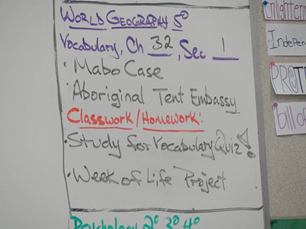 WORLD GEOGRAPHY 5°
Vocabulary, Ch 32, Sec 1
• Mabo Case
• Aboriginal Tent Embassy
Classwork/Homework:
• Study for Vocabulary Quiz
• Week of Life Project
Psychology 2° 3° 4°
Enlighten
Indepe
PROT
bill of